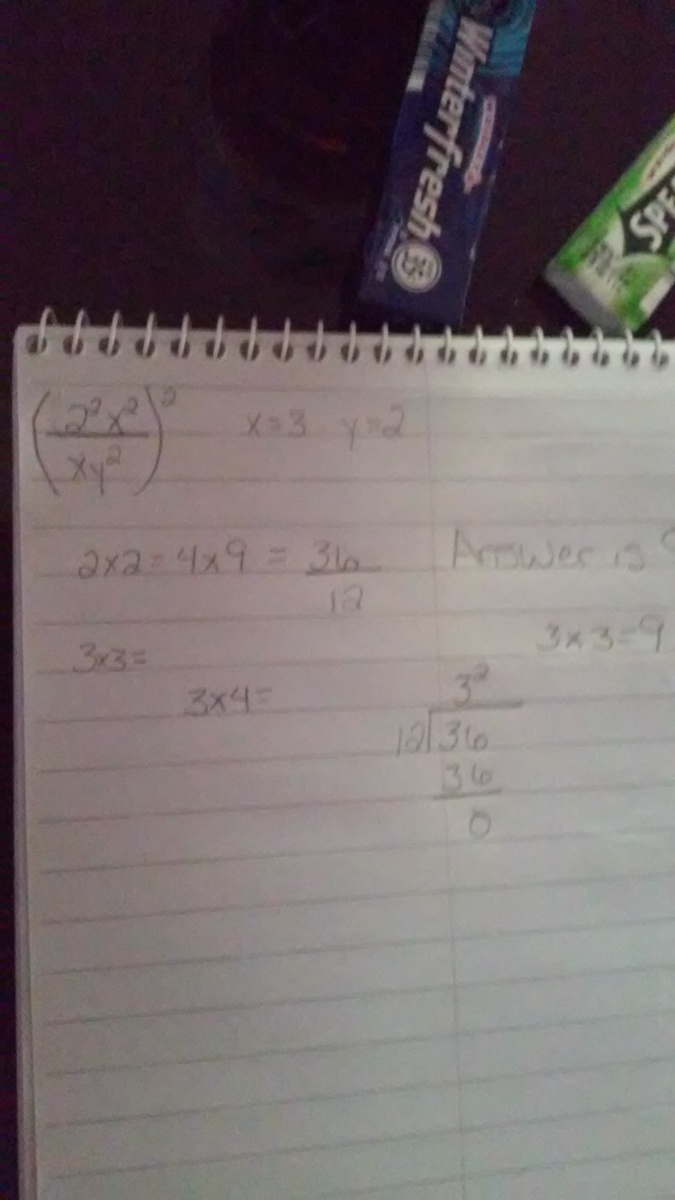 Winterfresh
35¢
SPE
(2²x²/xy²)² x=3 y=2
2x2=4x9 = 36/12 Answer is
3x3= 3x3=9
3x4= 3²
12⟌36
36
0